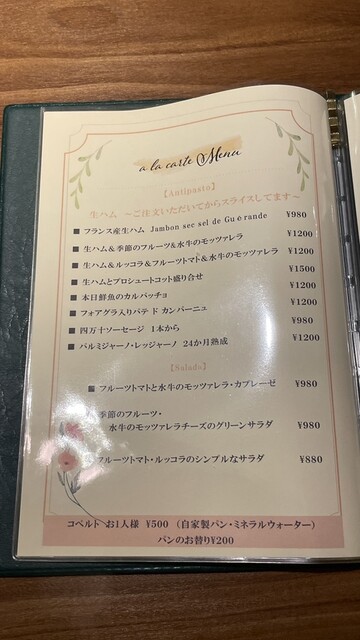 a la carte Menu
【Antipasto】
生ハム ～ご注文いただいてからスライスしてます～
■ フランス産生ハム Jambon sec sel de Guérande ¥980
■ 生ハム＆季節のフルーツ＆水牛のモッツァレラ ¥1200
■ 生ハム＆ルッコラ＆フルーツトマト＆水牛のモッツァレラ ¥1200
■ 生ハムとプロシュートコット盛り合せ ¥1500
■ 本日鮮魚のカルパッチョ ¥1200
■ フォアグラ入りパテ ド カンパーニュ ¥1200
■ 四万十ソーセージ 1本から ¥980
■ パルミジャーノ・レッジャーノ 24か月熟成 ¥1200
【Salado】
■ フルーツトマトと水牛のモッツァレラ・カプレーゼ ¥980
季節のフルーツ・
水牛のモッツァレラチーズのグリーンサラダ ¥980
フルーツトマト・ルッコラのシンプルなサラダ ¥880
コペルト お1人様 ¥500 （自家製パン・ミネラルウォーター）
パンのお替り¥200